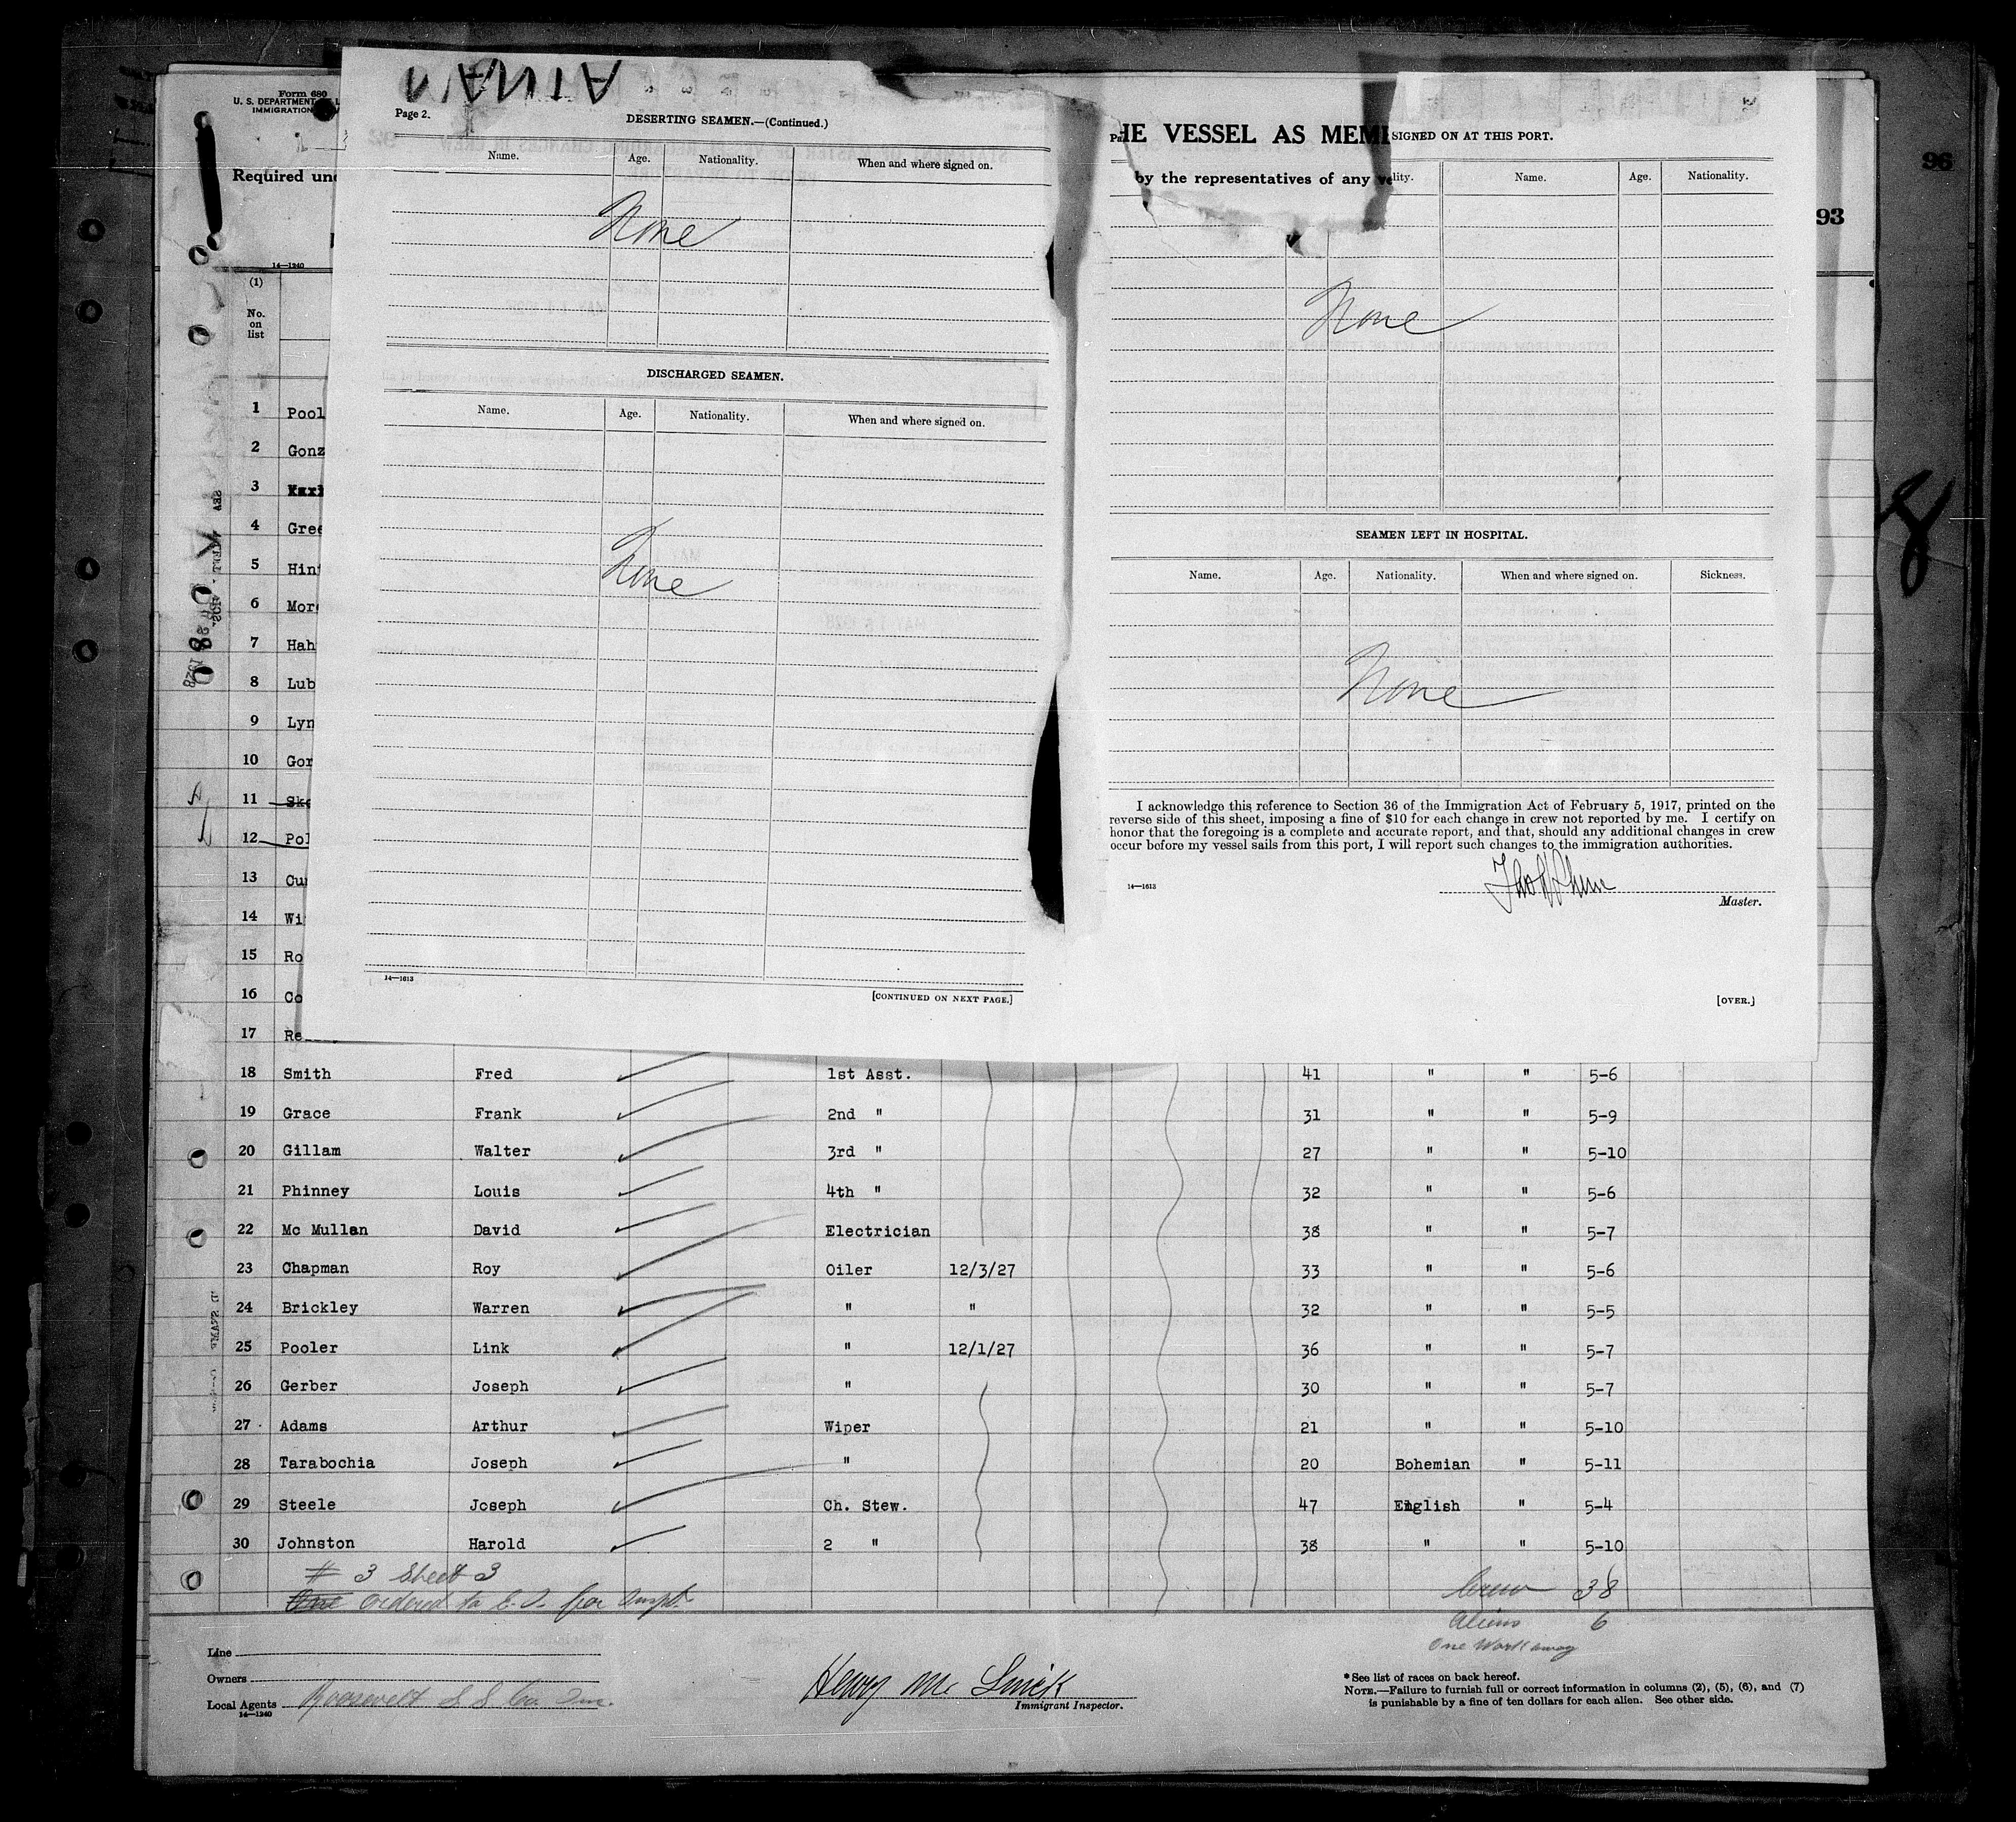 Form 680
U. S. DEPARTMENT
IMMIGRATION
Required und
14—1240
(1)
No.
on
list
Page 2.
DESERTING SEAMEN.—(Continued.)
Name. Age. Nationality. When and where signed on.
None
DISCHARGED SEAMEN.
Name. Age. Nationality. When and where signed on.
None
14—1613
[CONTINUED ON NEXT PAGE.]
HE VESSEL AS MEM
SIGNED ON AT THIS PORT.
by the representatives of any ve
lity. Name. Age. Nationality.
None
SEAMEN LEFT IN HOSPITAL.
Name. Age. Nationality. When and where signed on. Sickness.
None
I acknowledge this reference to Section 36 of the Immigration Act of February 5, 1917, printed on the
reverse side of this sheet, imposing a fine of $10 for each change in crew not reported by me. I certify on
honor that the foregoing is a complete and accurate report, and that, should any additional changes in crew
occur before my vessel sails from this port, I will report such changes to the immigration authorities.
14—1613
Master.
[OVER.]
96
93
8
1 Pool
2 Gonz
3
4 Gree
5 Hin
6 Mor
7 Hah
8 Lub
9 Lyn
10 Gor
11 Ske
12 Pol
13 Cu
14 Wi
15 Ro
16 Co
17 Re
18 Smith Fred 1st Asst. 41 " " 5-6
19 Grace Frank 2nd " 31 " " 5-9
20 Gillam Walter 3rd " 27 " " 5-10
21 Phinney Louis 4th " 32 " " 5-6
22 Mc Mullan David Electrician 38 " " 5-7
23 Chapman Roy Oiler 12/3/27 33 " " 5-6
24 Brickley Warren " " 32 " " 5-5
25 Pooler Link " 12/1/27 36 " " 5-7
26 Gerber Joseph " 30 " " 5-7
27 Adams Arthur Wiper 21 " " 5-10
28 Tarabochia Joseph " 20 Bohemian " 5-11
29 Steele Joseph Ch. Stew. 47 English " 5-4
30 Johnston Harold 2 " 38 " " 5-10
# 3 Sheet 3
One ordered to E. I. for Inspt.
Crew 38
Aliens 6
One Workaway
Line
Owners
Local Agents Roosevelt S S Co. Inc.
14—1240
Henry M. Smick
Immigrant Inspector.
* See list of races on back hereof.
NOTE.—Failure to furnish full or correct information in columns (2), (5), (6), and (7)
is punishable by a fine of ten dollars for each alien. See other side.